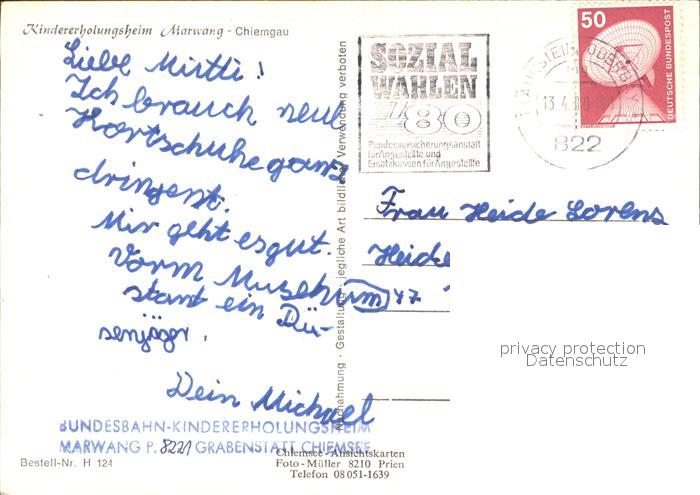 Kindererholungsheim Marwang - Chiemgau
Liebe Mutti!
Ich brauch neue
Hartschuhe ganz
dringent.
Mir geht es gut.
Vorm Musehum
stant ein Dü-
senjäger.
Dein Michael
BUNDESBAHN-KINDERERHOLUNGSHEIM
MARWANG P. 8221 GRABENSTÄTT CHIEMSEE
Bestell-Nr. H 124
Chiemsee-Ansichtskarten
Foto-Müller 8210 Prien
Telefon 08051-1639
Nachahmung · Gestaltung · jegliche Art bildlicher Verwendung verboten
SOZIAL
WAHLEN
80
Bundesversicherungsanstalt
für Angestellte und
Ersatzkassen für Angestellte
TRAUNSTEIN, OBERBAY
13.4.80
822
50
DEUTSCHE BUNDESPOST
Frau Heide Lorens
Heide
47
privacy protection
Datenschutz